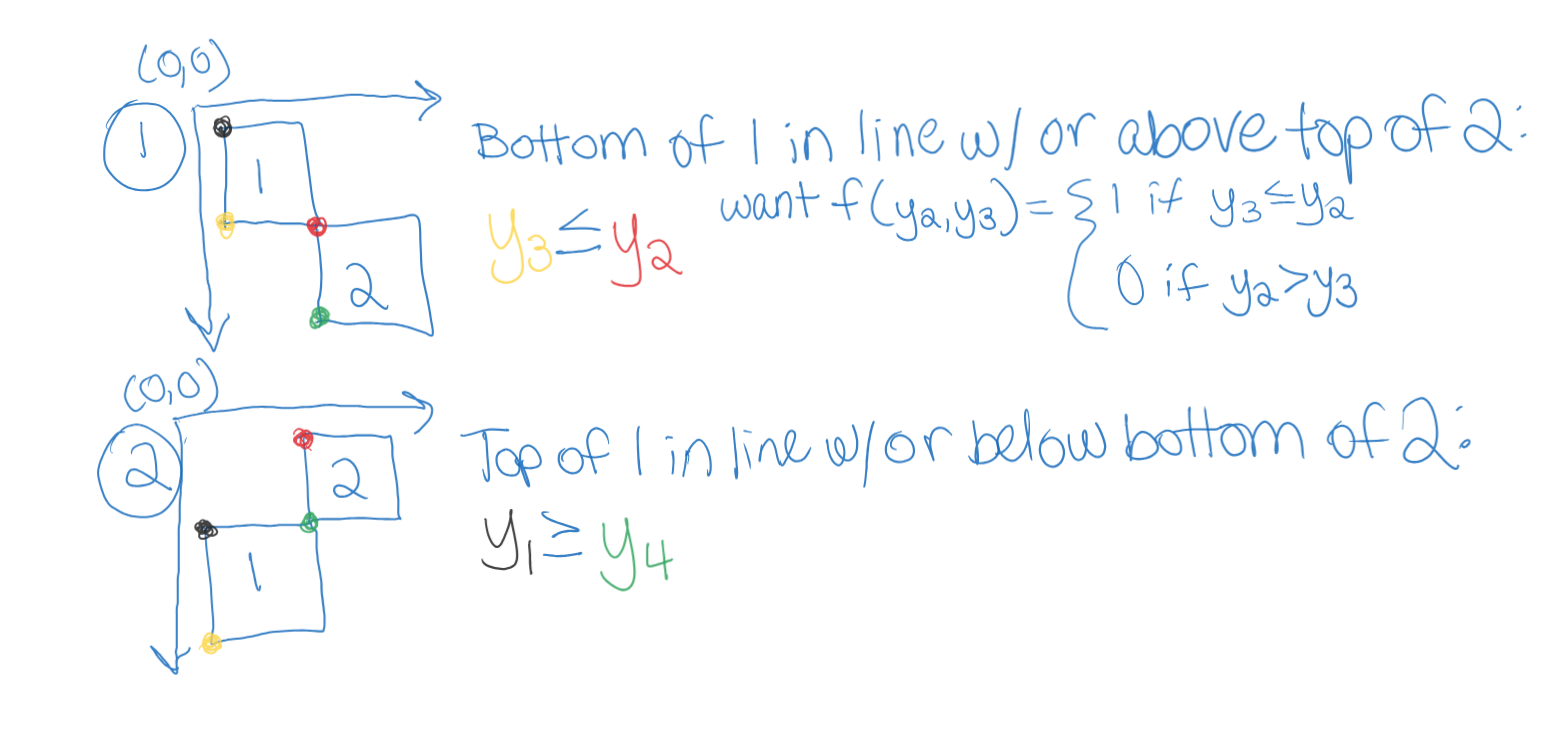 (0,0)
1
1
2
Bottom of 1 in line w/ or above top of 2:
y3 ≤ y2
want f(y2,y3) = { 1 if y3 ≤ y2
0 if y2 > y3
(0,0)
2
2
1
Top of 1 in line w/ or below bottom of 2:
y1 ≥ y4